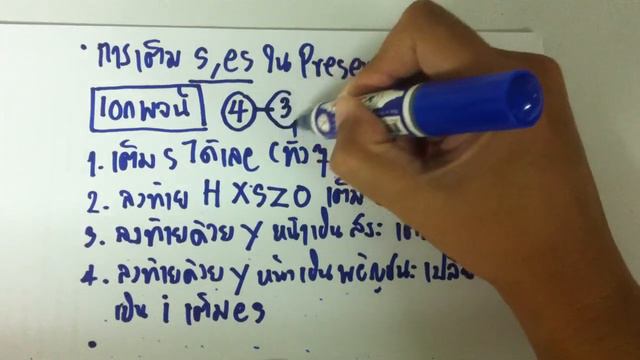 · การเติม s,es ใน Prese
เอกพจน์ 4-3
1. เติม s ได้เลย (ทั่วๆ
2. ลงท้าย H X S Z O เติม
3. ลงท้ายด้วย y หน้าเป็น สระ เต
4. ลงท้ายด้วย y หน้าเป็น พยัญชนะ เปลี่
เป็น i เติม es
·